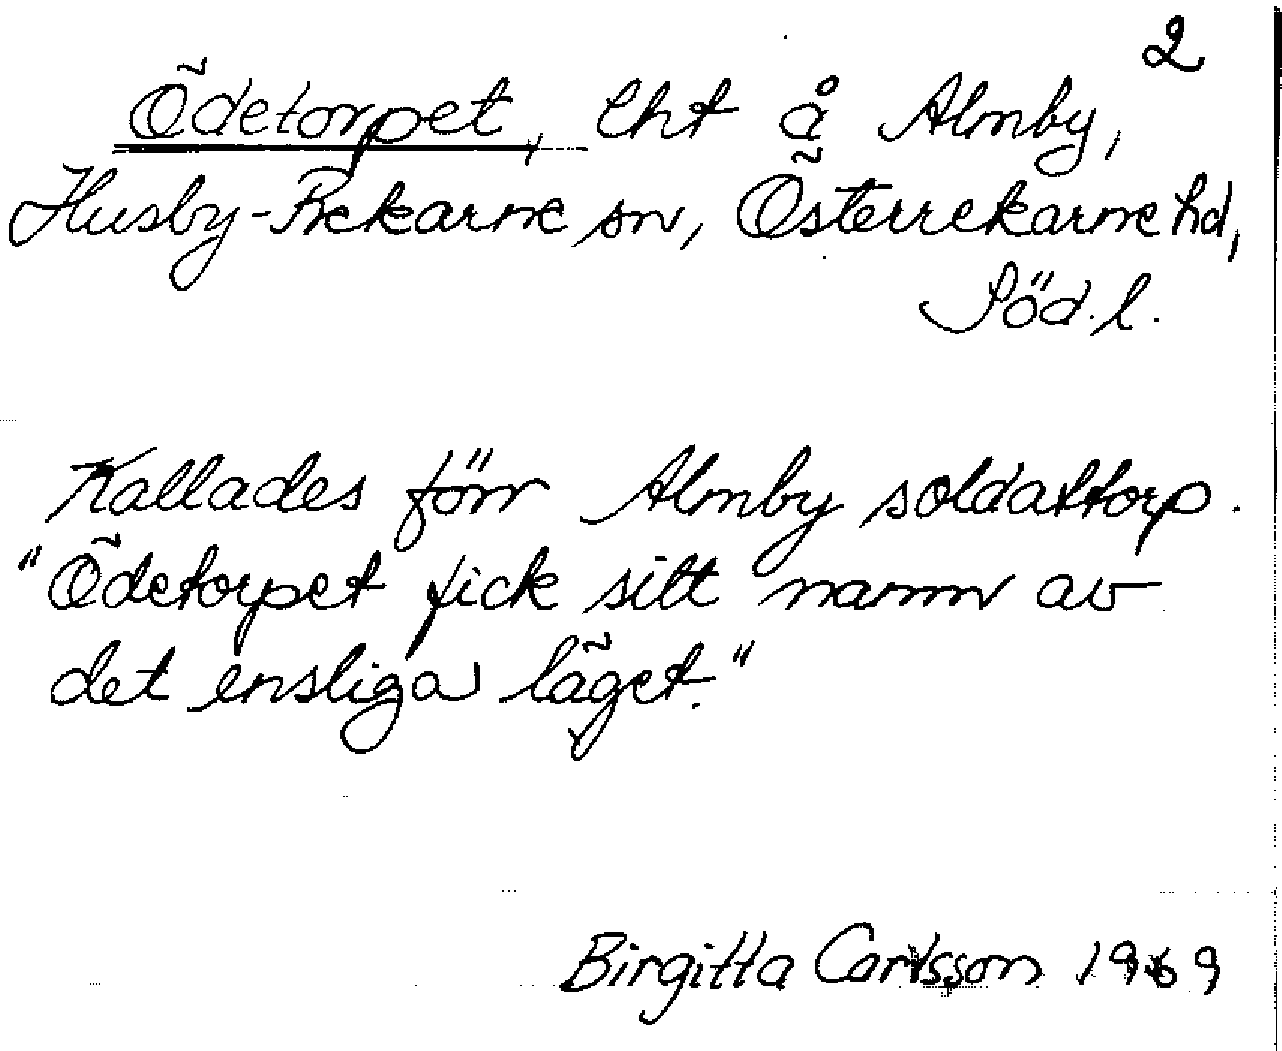 2
Ödetorpet, lht å Almby,
Husby-Rekarne sn, Österrekarne hd,
Söd. l.
Kallades förr Almby soldattorp.
"Ödetorpet fick sitt namn av
det ensliga läget."
Birgitta Carlsson 1969